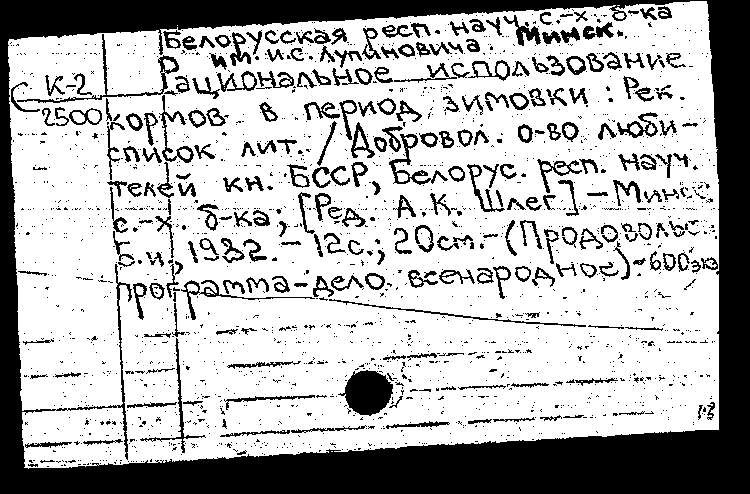 Белорусская респ. науч. с.-х. б-ка
им. И.С. Лупиновича. Минск.
Рациональное использование
К-2
2500
кормов в период зимовки : Рек.
список лит. / Добровол. о-во люби-
телей кн. БССР, Белорус. респ. науч.
с.-х. б-ка; [Ред. А.К. Шлег]. - Минск:
Б.и., 1982. - 12с.; 20см. - (Продовольс.
программа - дело всенародное) - 600экз